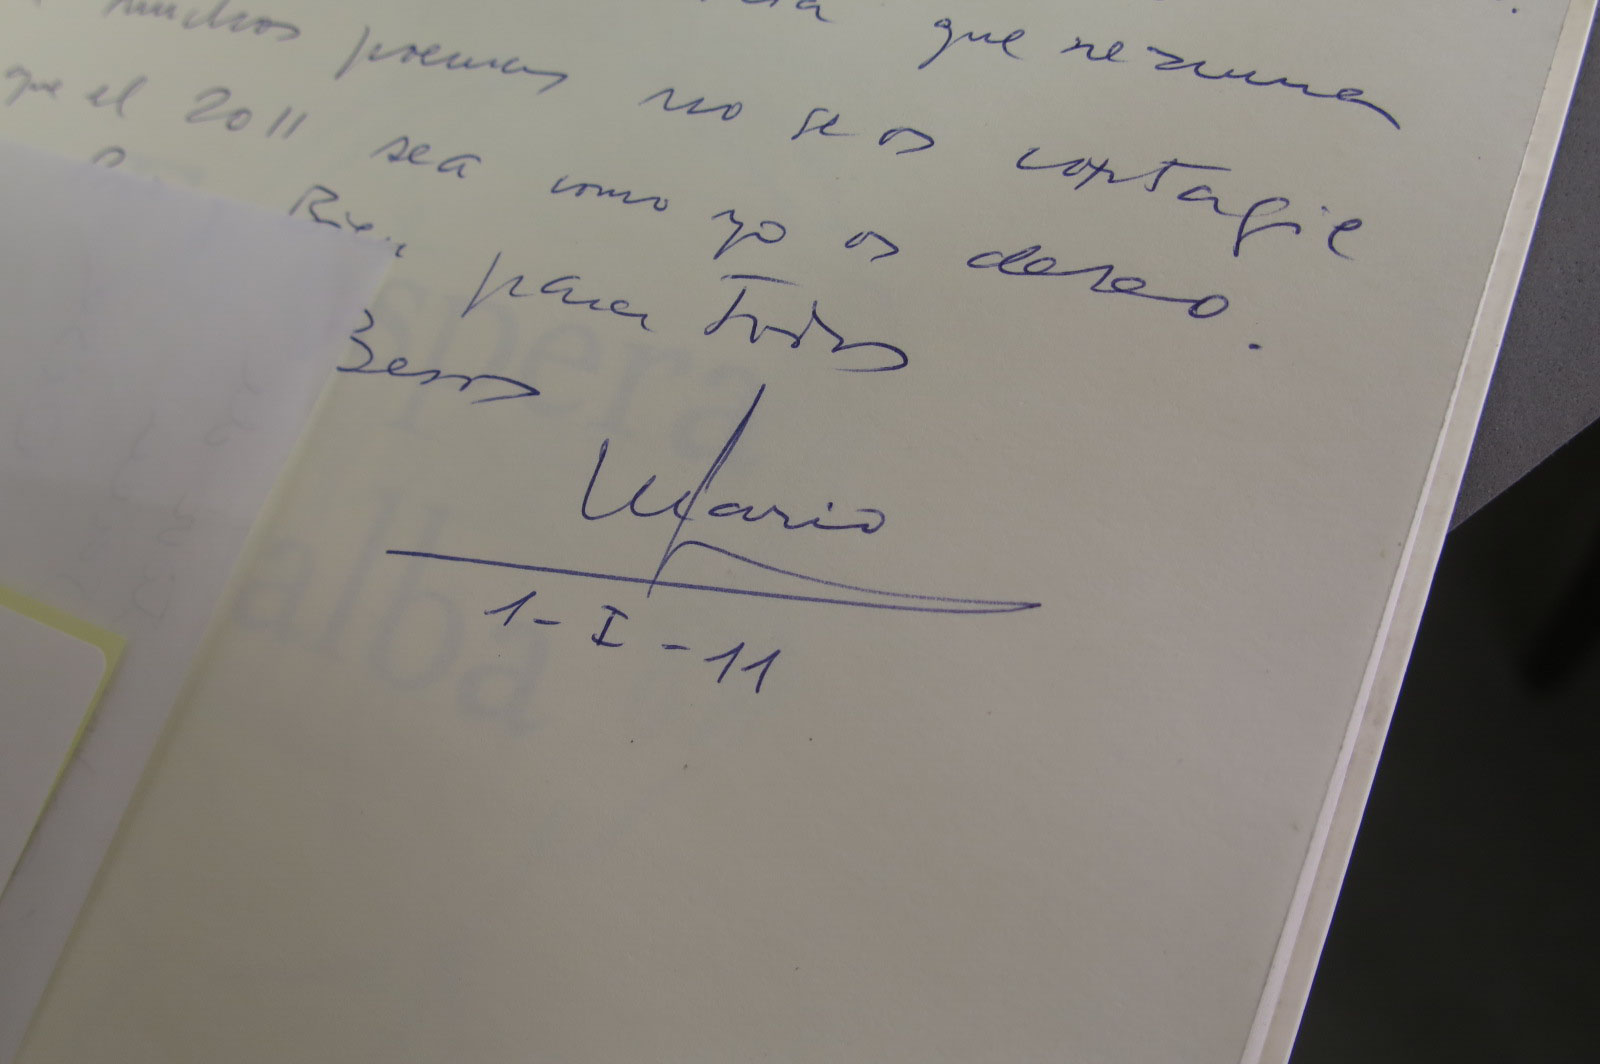 que rezuma
muchos poemas no se os contagie
que el 2011 sea como yo os deseo.
para Todos
Besos
Mario
1-I-11